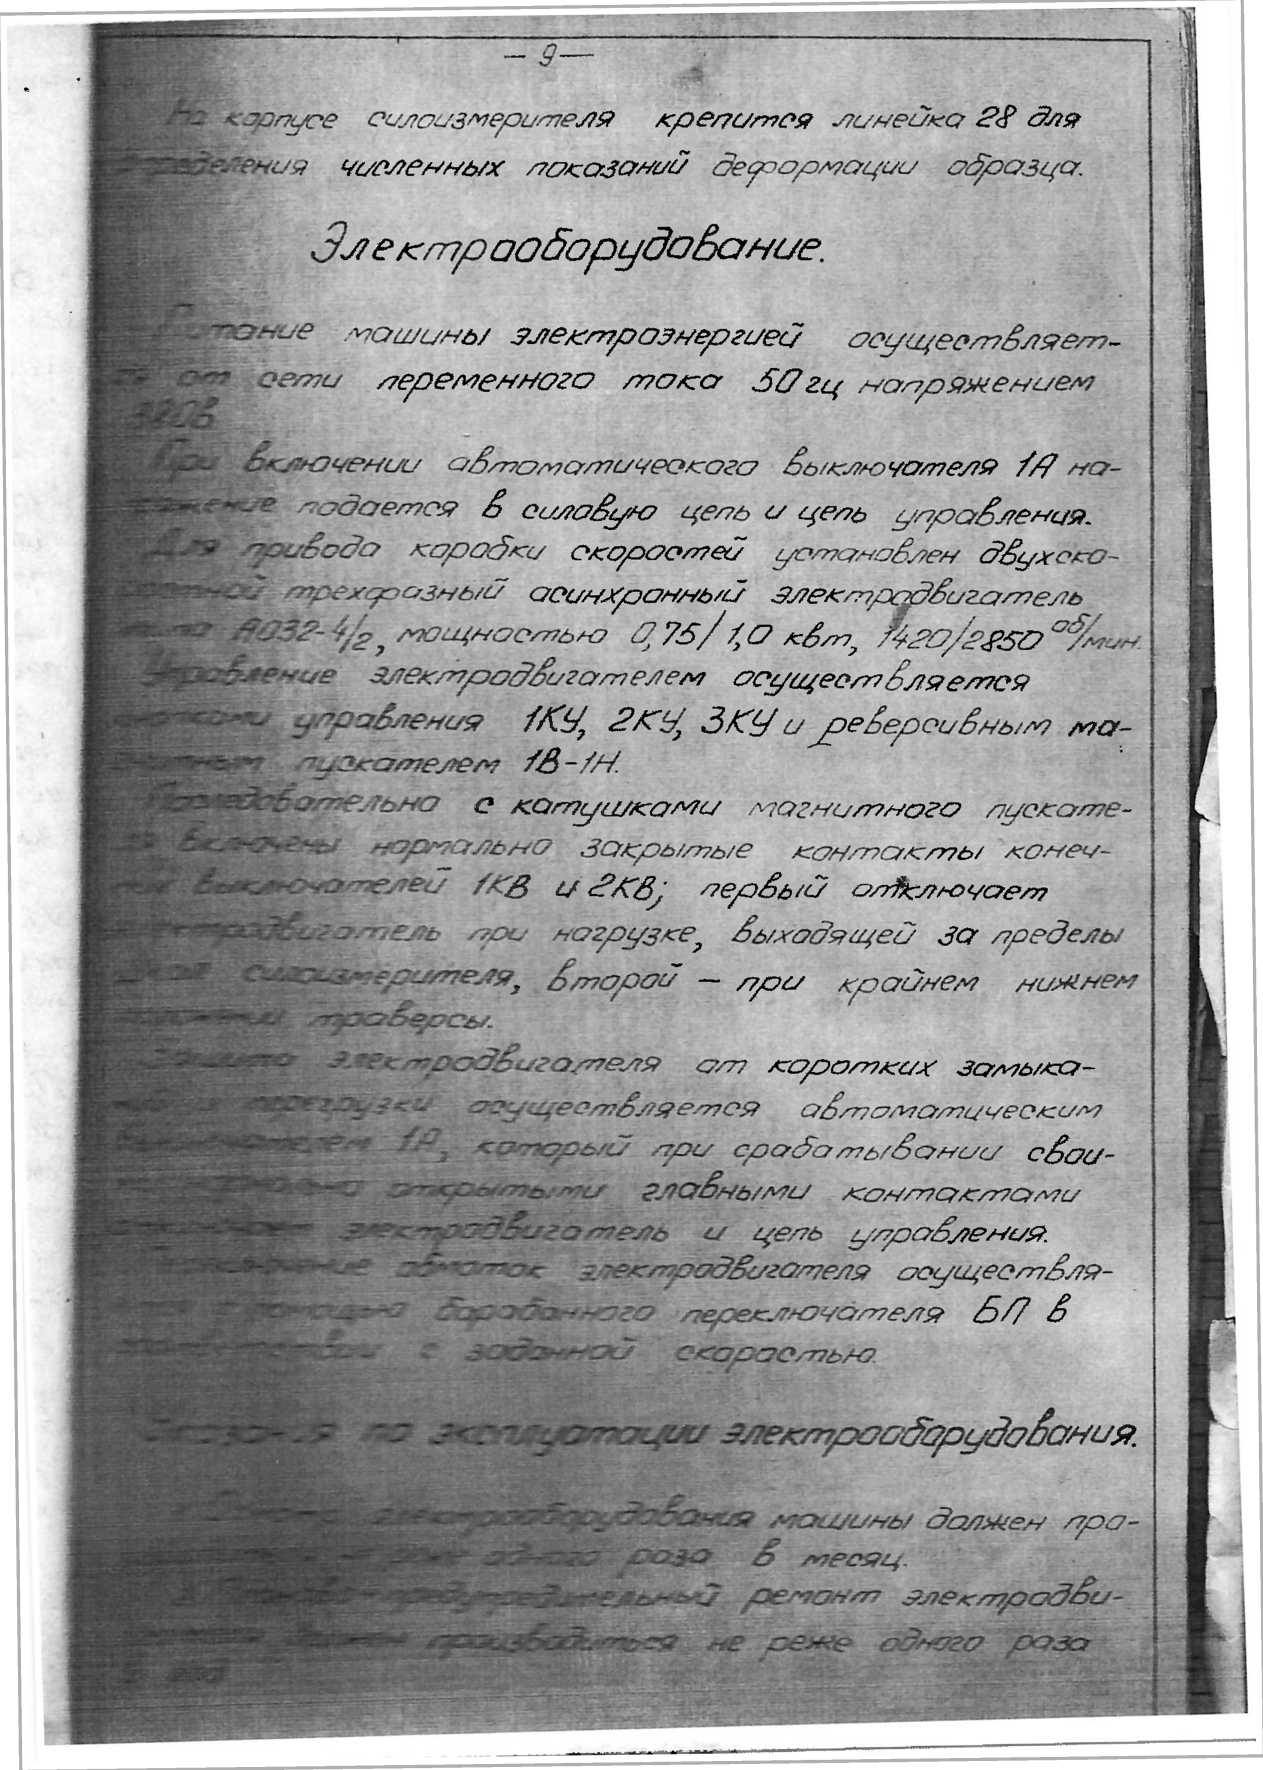 — 9 —
На корпусе силоизмерителя крепится линейка 28 для
определения численных показаний деформации образца.
Электрооборудование.
Питание машины электроэнергией осуществляет-
ся от сети переменного тока 50 гц напряжением
380в
При включении автоматического выключателя 1А на-
пряжение подается в силовую цепь и цепь управления.
Для привода коробки скоростей установлен двухско-
ростной трехфазный асинхронный электродвигатель
типа АО32-4/2, мощностью 0,75/1,0 квт, 1420/2850 об/мин.
Управление электродвигателем осуществляется
кнопками управления 1КУ, 2КУ, 3КУ и реверсивным ма-
гнитным пускателем 1В-1Н.
Последовательно с катушками магнитного пускате-
ля включены нормально закрытые контакты конеч-
ных выключателей 1КВ и 2КВ; первый отключает
электродвигатель при нагрузке, выходящей за пределы
шкал силоизмерителя, второй – при крайнем нижнем
положении траверсы.
Защита электродвигателя от коротких замыка-
перегрузки осуществляется автоматическим
выключателем 1А, который при срабатывании свои-
открытыми главными контактами
электродвигатель и цепь управления.
обмоток электродвигателя осуществля-
с помощью барабанного переключателя БП в
соответствии с заданной скоростью.
по эксплуатации электрооборудования.
Осмотр электрооборудования машины должен про-
одного раза в месяц.
предупредительный ремонт электродви-
должен производиться не реже одного раза